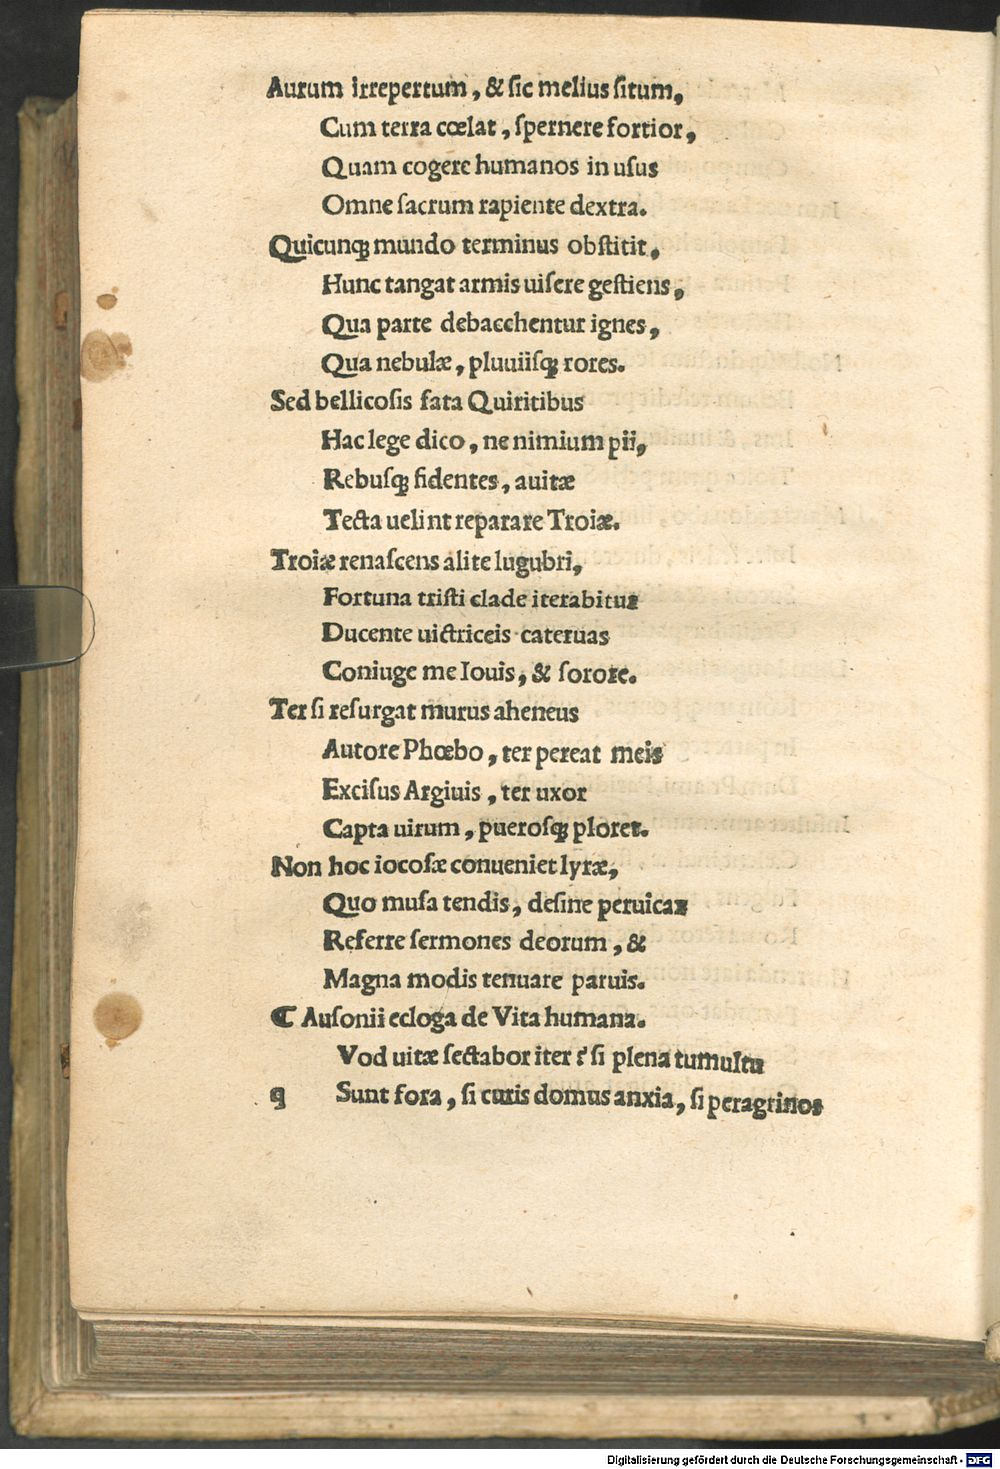 Aurum irrepertum, & sic melius situm,
Cum terra cœlat, spernere fortior,
Quam cogere humanos in usus
Omne sacrum rapiente dextra.
Quicunq; mundo terminus obstitit,
Hunc tangat armis uisere gestiens,
Qua parte debacchentur ignes,
Qua nebulæ, pluuiisq; rores.
Sed bellicosis fata Quiritibus
Hac lege dico, ne nimium pii,
Rebusq; fidentes, avitæ
Tecta uelint reparare Troiæ.
Troiæ renascens alite lugubri,
Fortuna tristi clade iterabitur
Ducente uictriceis cateruas
Coniuge me Iouis, & sorore.
Ter si resurgat murus aheneus
Autore Phœbo, ter pereat meis
Excisus Argiuis, ter uxor
Capta uirum, puerosq; ploret.
Non hoc iocosæ conueniet lyræ,
Quo musa tendis, desine peruicax
Referre sermones deorum, &
Magna modis tenuare paruis.
¶ Ausonii ecloga de Vita humana.
Vod uitæ sectabor iter? si plena tumultu
q Sunt fora, si curis domus anxia, si peragrinos
Digitalisierung gefördert durch die Deutsche Forschungsgemeinschaft - DFG